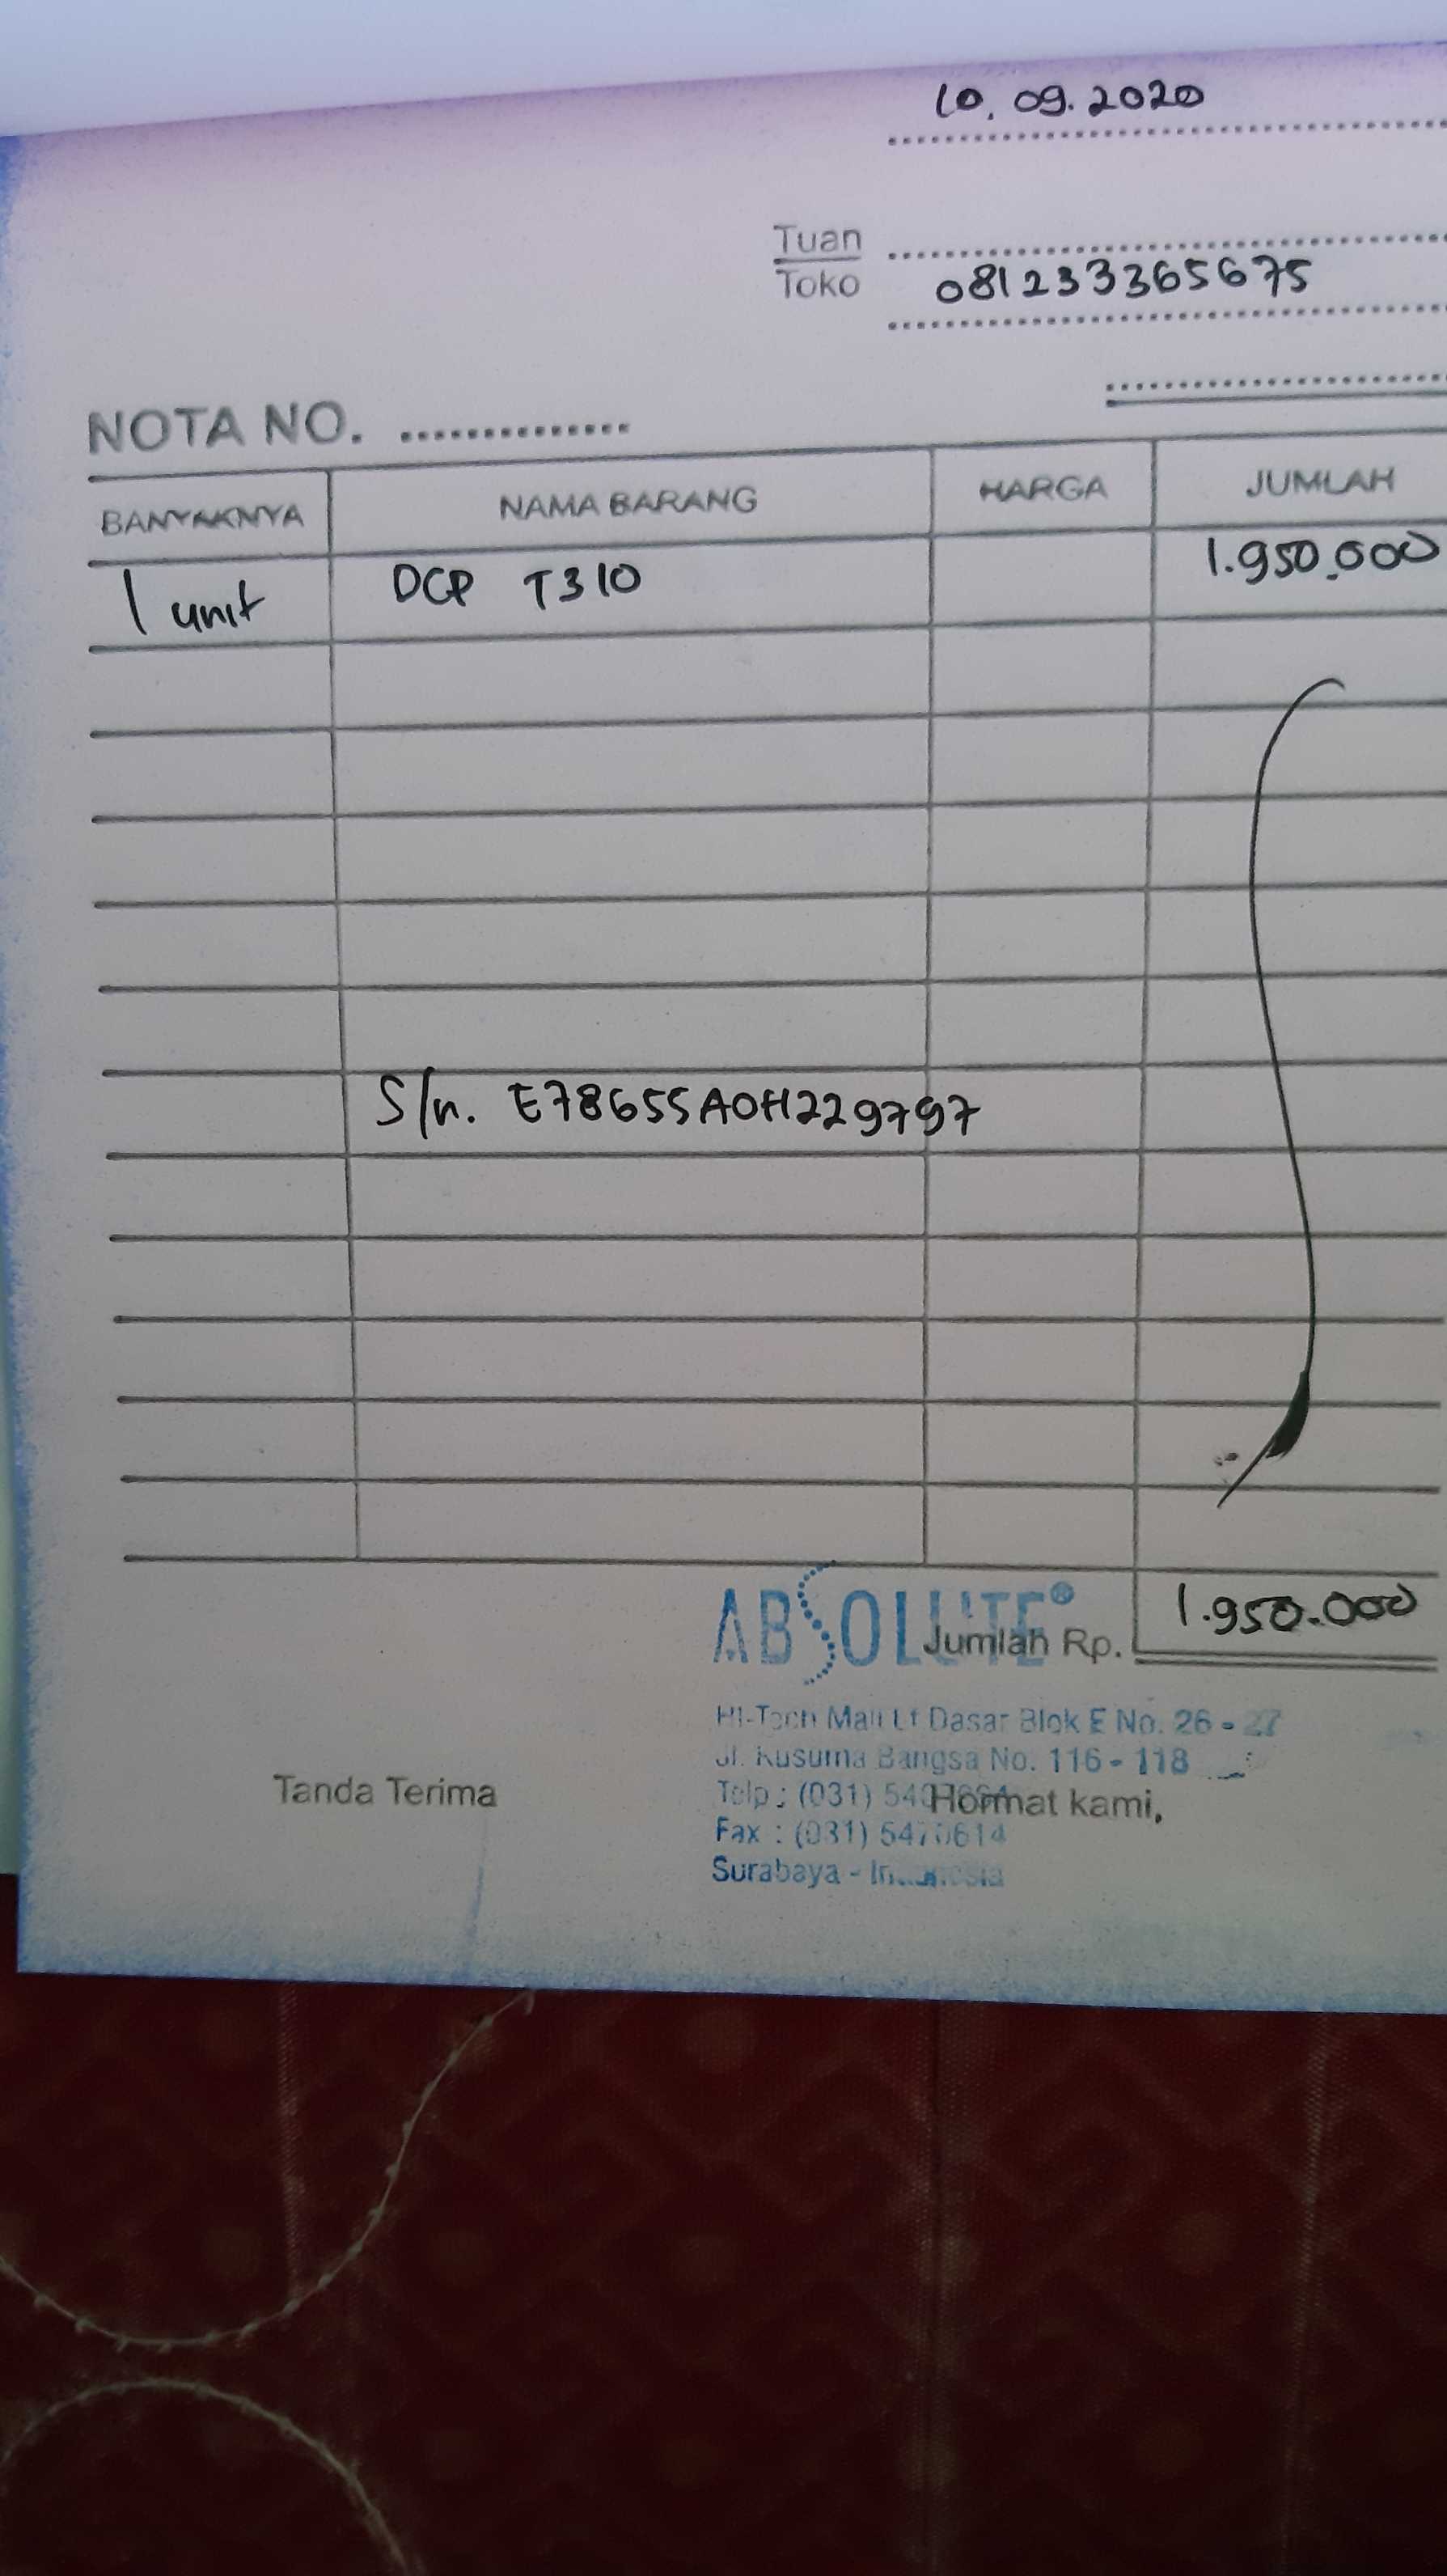 10.09.2020
Tuan
Toko
081233365675
NOTA NO. ..............
BANYAKNYA NAMA BARANG HARGA JUMLAH
1 unit DCP T310 1.950.000
S/n. E78655A0H229797
ABSOLUTE®
Jumlah Rp. 1.950.000
Hi-Tech Mall Lt Dasar Blok E No. 26 - 27
Jl. Kusuma Bangsa No. 116 - 118
Tanda Terima
Telp : (031)
Hormat kami,
Fax : (031)
Surabaya - Indonesia